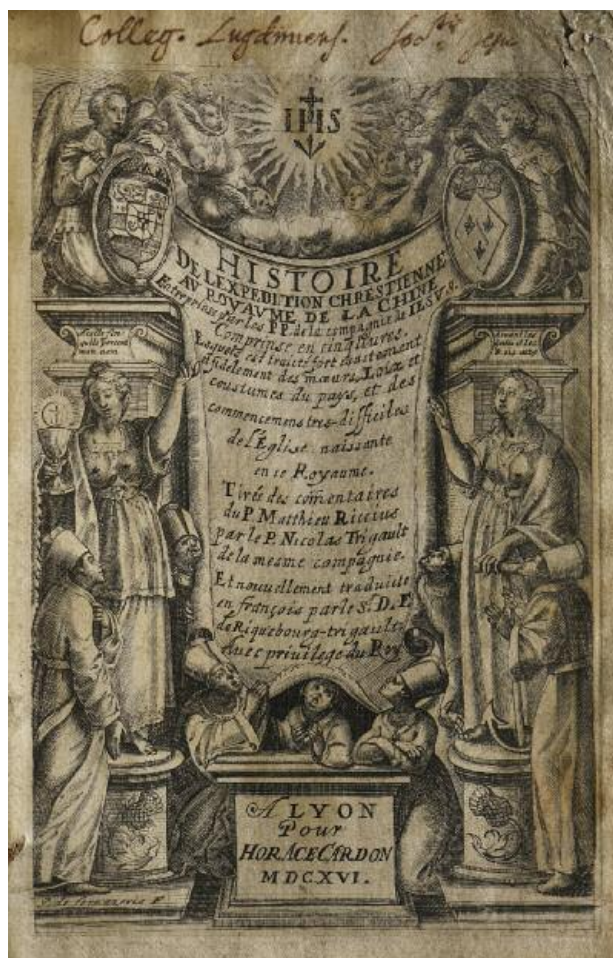 Colleg. Lugdunens. Soc.tis Jesu
IHS
HISTOIRE
DE L'EXPEDITION CHRESTIENNE
AV ROYAVME DE LA CHINE
Entreprise par les PP. de la compagnie de IESVS.
Comprinse en cinq livres.
Esquels est traicté fort exactement
et fidelement des mœurs, Loix et
coustumes du pays, et des
commencemens tres-difficiles
de l'Eglise naissante
en ce Royaume.
Tirée des cõmentaires
du P. Matthieu Riccius
par le P. Nicolas Trigault
de la mesme compagnie.
Et nouuellement traduicte
en françois par le S. D. F.
de Riquebourg-trigault.
Auec privilege du Roy
A LYON
Pour
HORACE CARDON
MDCXVI.